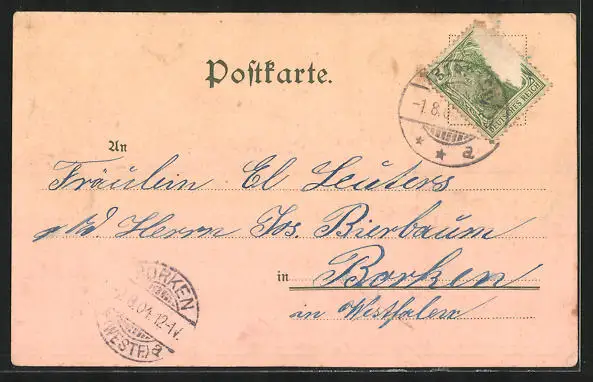 Postkarte.
DEUTSCHES REICH
-1.8.0
* * a
An
Fräulein El Leuters
p/Ad Herrn Jos. Bierbaum
in Borken
in Westfalen
BORKEN
.8.04.12-1V.
(WESTF.) a